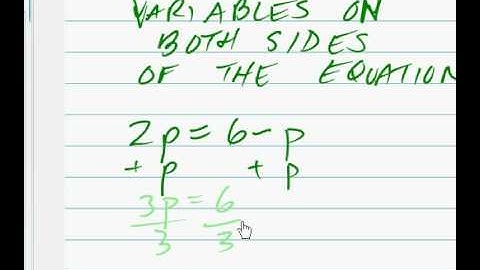 VARIABLES ON
BOTH SIDES
OF THE EQUATION
2p = 6 - p
+ p + p
3p = 6
3 3